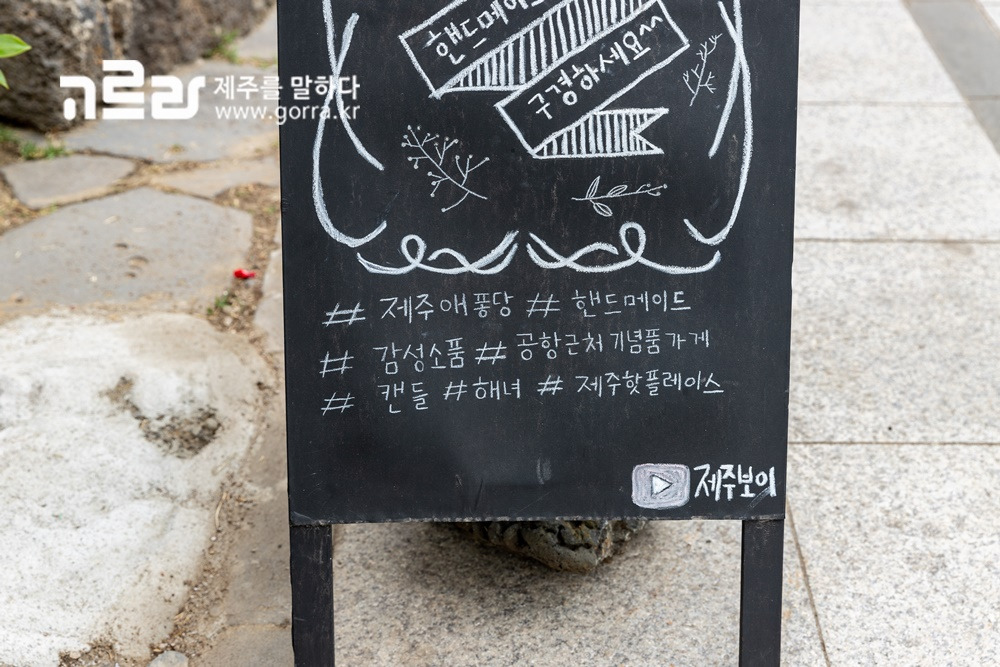 핸드메이드
구경하세요~
고르라 제주를 말하다
www.gorra.kr
# 제주애퐁당 # 핸드메이드
# 감성소품 # 공항근처기념품가게
# 캔들 # 해녀 # 제주핫플레이스
제주보이